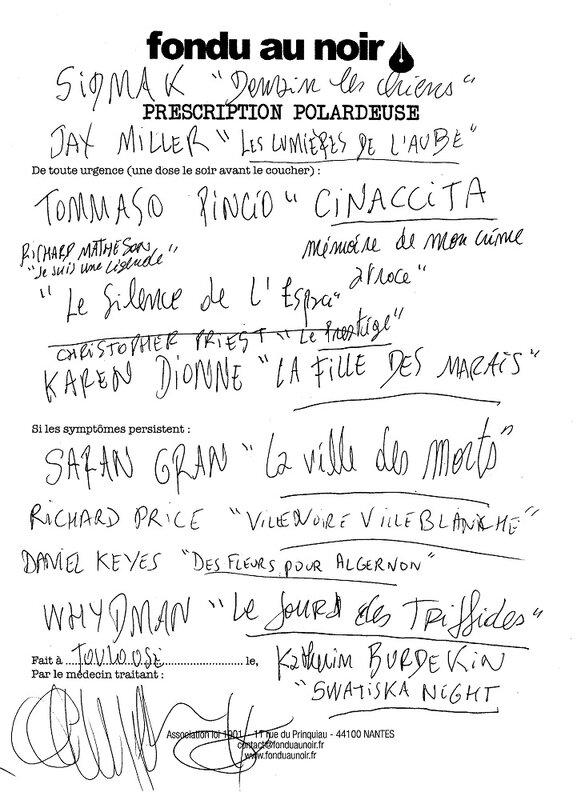 fondu au noir
SIMAK "Demain les chiens"
PRESCRIPTION POLARDEUSE
JAX MILLER "LES LUMIÈRES DE L'AUBE"
De toute urgence (une dose le soir avant le coucher) :
TOMMASO PINCIO "CINACCITA
mémoire de mon crime
atroce"
RICHARD MATHESON
"Je suis une légende"
"Le Silence de l'
CHRISTOPHER PRIEST "Le Prestige"
KAREN DIONNE "LA FILLE DES MARAIS"
Si les symptômes persistent :
SARAN GRAN "La ville des Morts"
RICHARD PRICE "VILLE NOIRE VILLE BLANCHE"
DANIEL KEYES "DES FLEURS POUR ALGERNON"
WHYDMAN "Le Jours des Triffides"
Fait à TOULOUSE le,
Par le médecin traitant :
BURDEKIN
"SWATISKA NIGHT
Association loi 1901 - 11 rue du Prinquiau - 44100 NANTES
contact@fonduaunoir.fr
www.fonduaunoir.fr